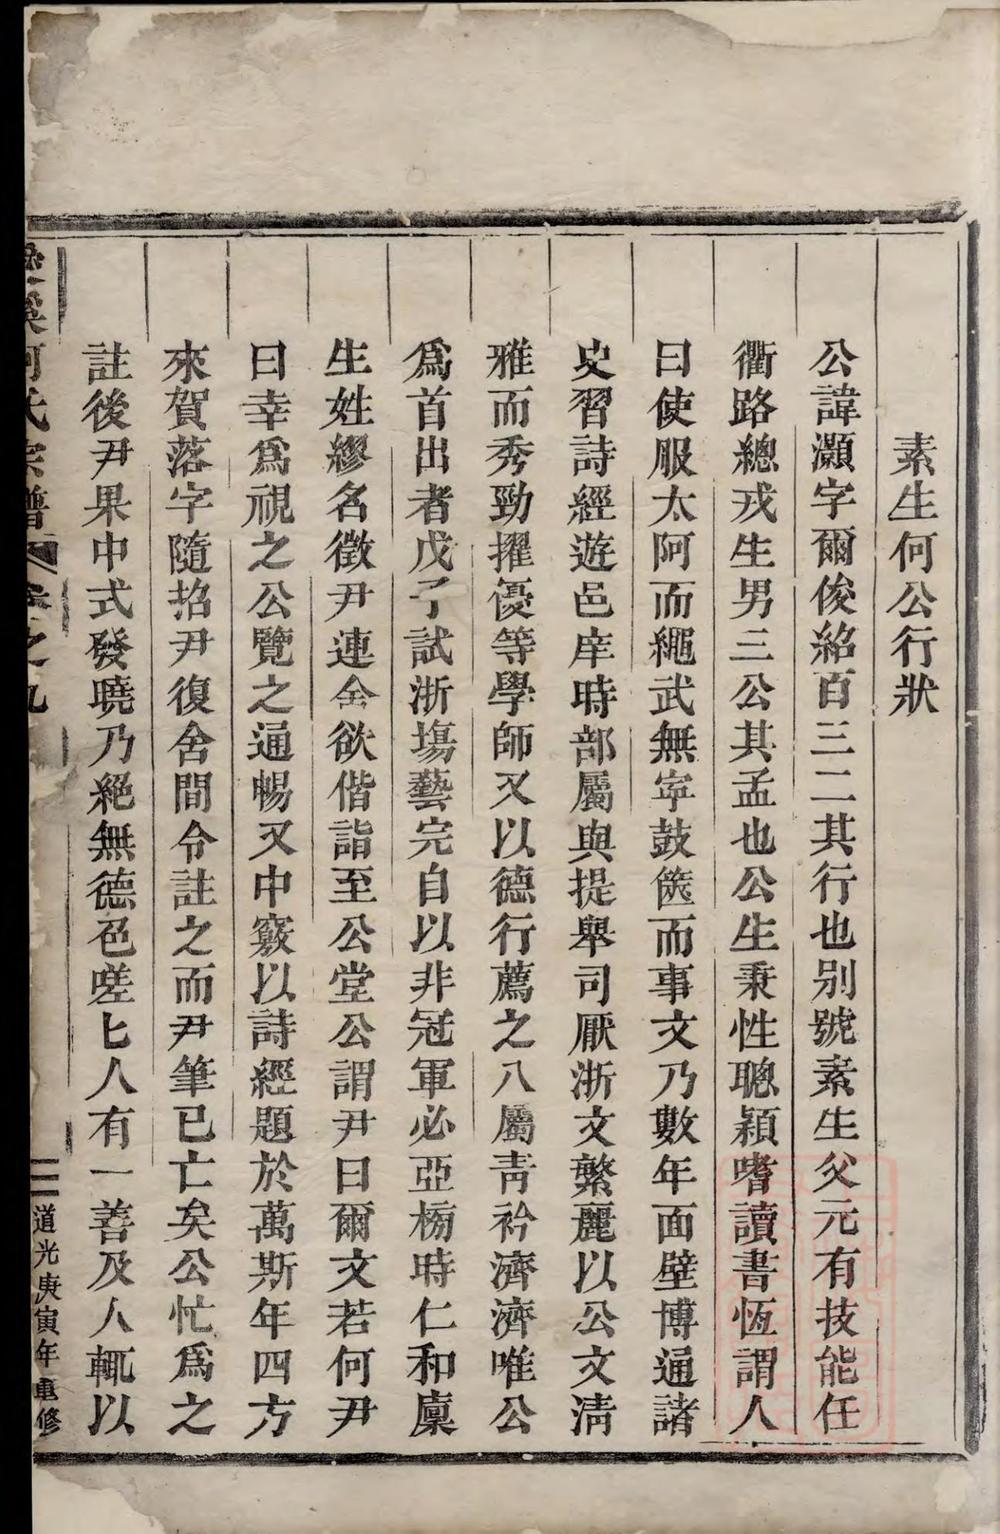 素生何公行狀
公諱灝字爾俊紹百三二其行也別號素生父元有技能任
衢路總戎生男三公其孟也公生秉性聰穎嗜讀書恆謂人
曰使服太阿而繩武無寜鼓篋而事文乃數年面壁博通諸
史習詩經遊邑庠時部屬與提舉司厭浙文繁麗以公文淸
雅而秀勁擢優等學師又以德行薦之八屬靑衿濟濟唯公
爲首出者戊子試浙塲藝完自以非冠軍必亞榜時仁和廩
生姓繆名徵尹連舍欲偕詣至公堂公謂尹曰爾文若何尹
曰幸爲視之公覽之通暢又中竅以詩經題於萬斯年四方
來賀落字隨招尹復舍間令註之而尹筆已亡矣公忙爲之
註後尹果中式發曉乃絕無德色嗟匕人有一善及人輒以
何氏宗譜 卷之九 二 道光庚寅年重修